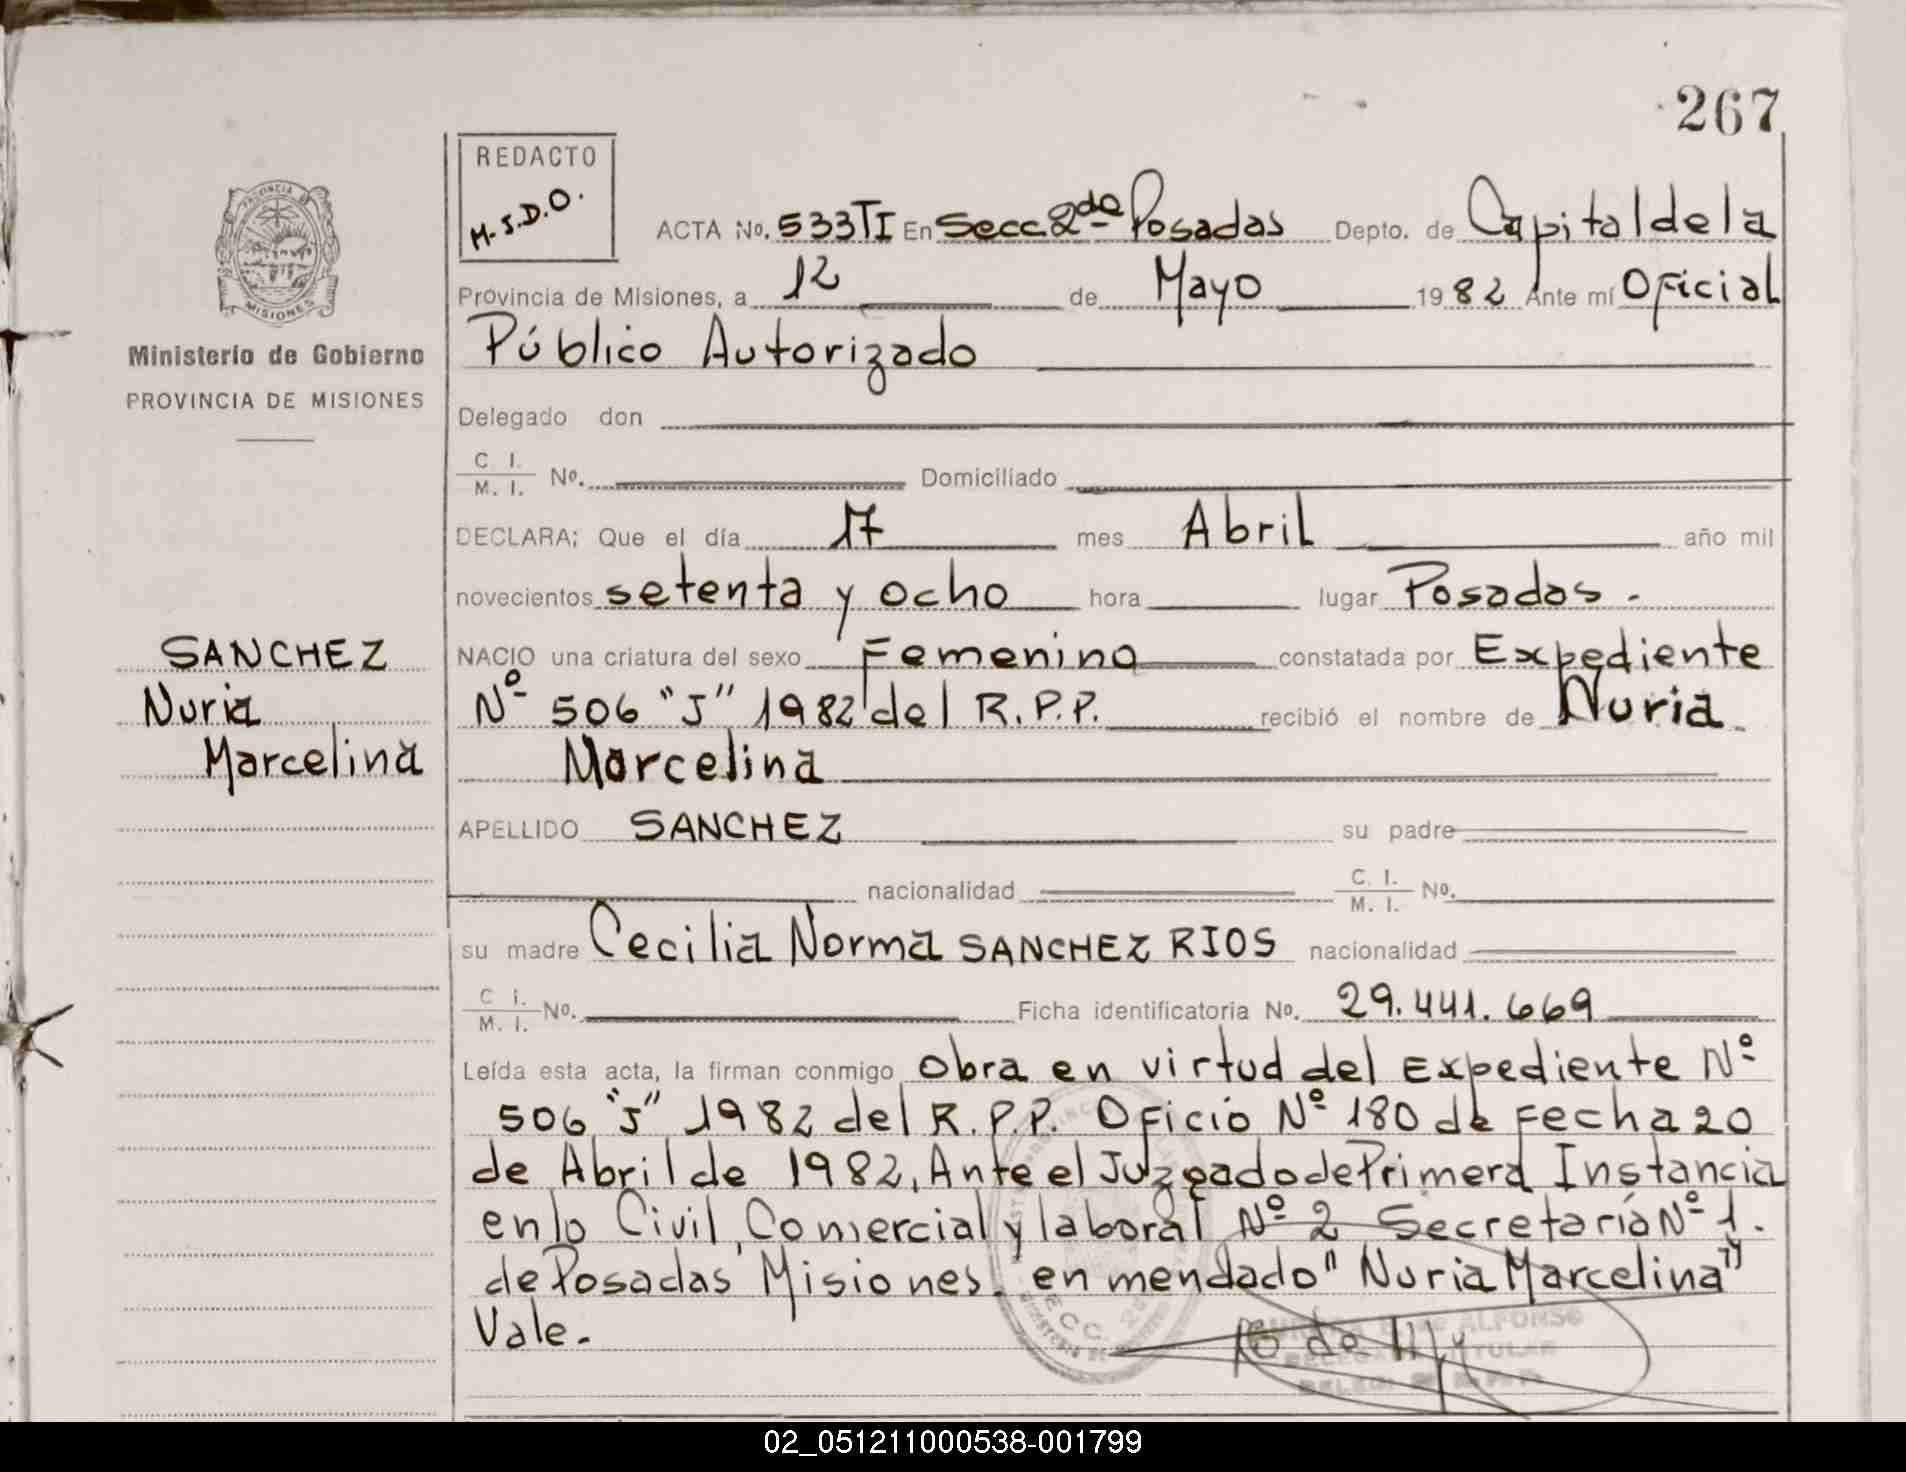 267
REDACTO
M.S.D.O.
ACTA No. 533TI En Secc 2da Posadas Depto. de Capital de la
Provincia de Misiones, a 12 de Mayo 1982 Ante mí Oficial
Público Autorizado
Delegado don
C. I. / M. I. No. Domiciliado
DECLARA; Que el día 17 mes Abril año mil
novecientos setenta y ocho hora lugar Posadas.
NACIO una criatura del sexo Femenino constatada por Expediente
Nº 506 "J" 1982 del R.P.P. recibió el nombre de Nuria
Marcelina
APELLIDO SANCHEZ su padre
nacionalidad C. I. / M. I. No.
su madre Cecilia Norma SANCHEZ RIOS nacionalidad
C I. / M. I. No. Ficha identificatoria No. 29.441.669
Leída esta acta, la firman conmigo Obra en virtud del Expediente Nº
506 "J" 1982 del R.P.P. Oficio Nº 180 de Fecha 20
de Abril de 1982, Ante el Juzgado de Primera Instancia
en lo Civil, Comercial y laboral Nº 2 Secretaria Nº 1.
de Posadas Misiones. enmendado "Nuria Marcelina"
Vale.
PROVINCIA
MISIONES
Ministerio de Gobierno
PROVINCIA DE MISIONES
SANCHEZ
Nuria
Marcelina
SECC. 2ª
de ALFONSO
TITULAR
02_051211000538-001799